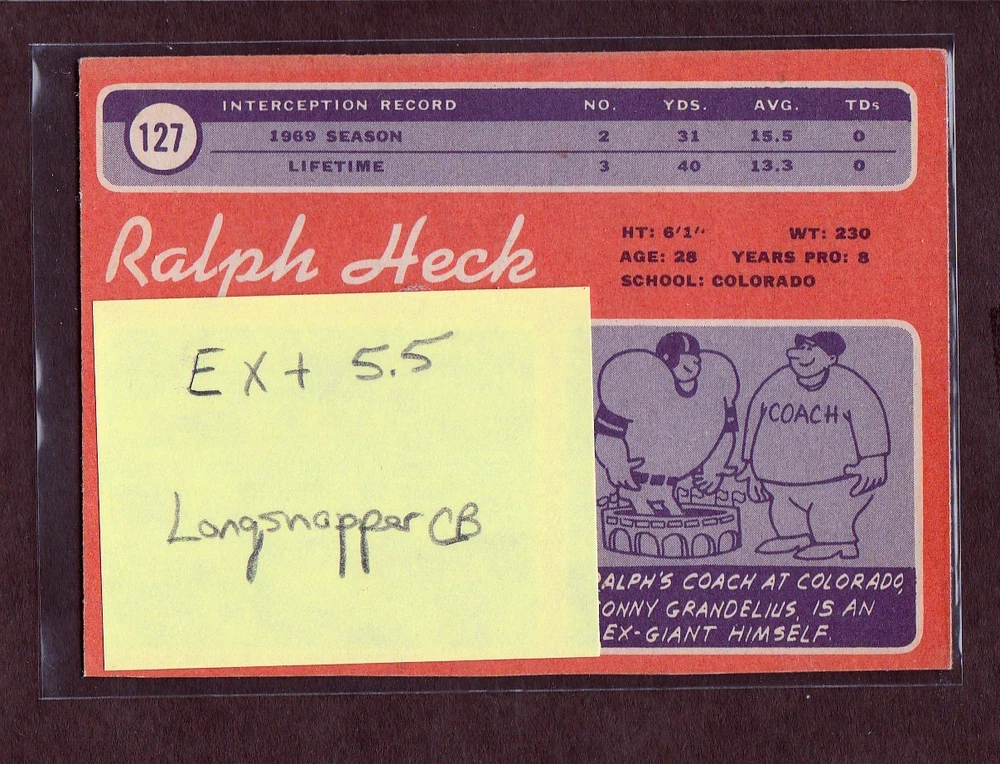 127
INTERCEPTION RECORD NO. YDS. AVG. TDs
1969 SEASON 2 31 15.5 0
LIFETIME 3 40 13.3 0
Ralph Heck
HT: 6'1" WT: 230
AGE: 28 YEARS PRO: 8
SCHOOL: COLORADO
EX+ 5.5
Longsnapper CB
COACH
RALPH'S COACH AT COLORADO,
ONNY GRANDELIUS, IS AN
EX-GIANT HIMSELF.